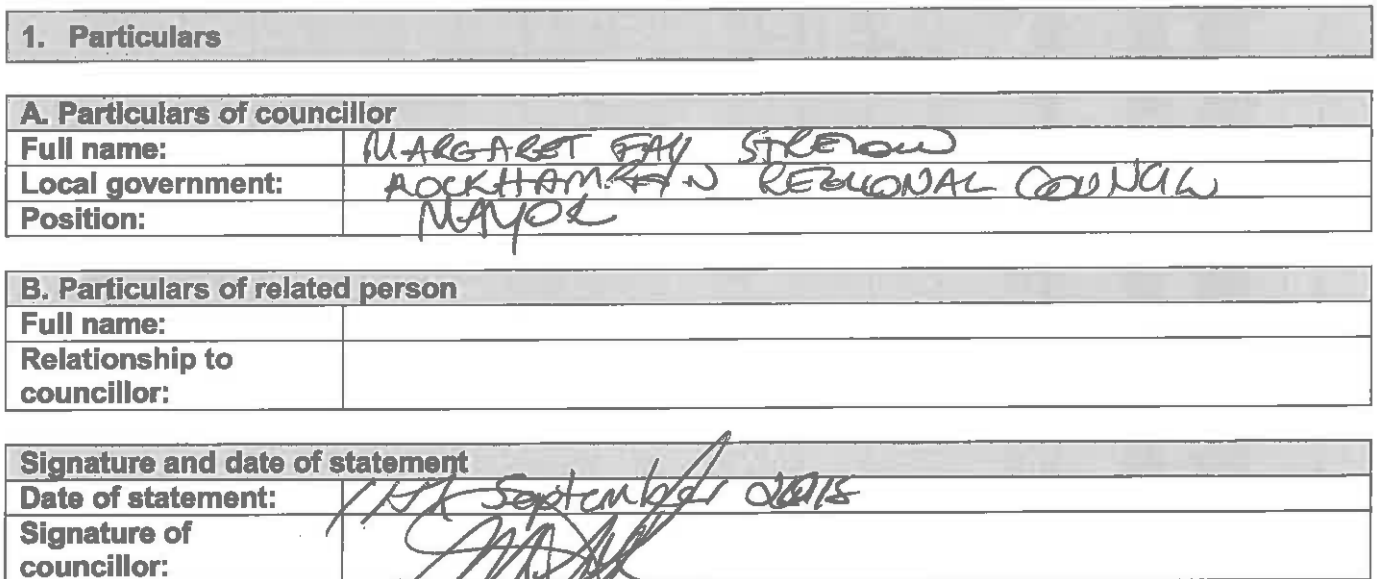 1. Particulars
A. Particulars of councillor
Full name: MARGARET FAY STRELOW
Local government: ROCKHAMPTON REGIONAL COUNCIL
Position: MAYOR
B. Particulars of related person
Full name:
Relationship to
councillor:
Signature and date of statement
Date of statement: 11th September 2015
Signature of
councillor: